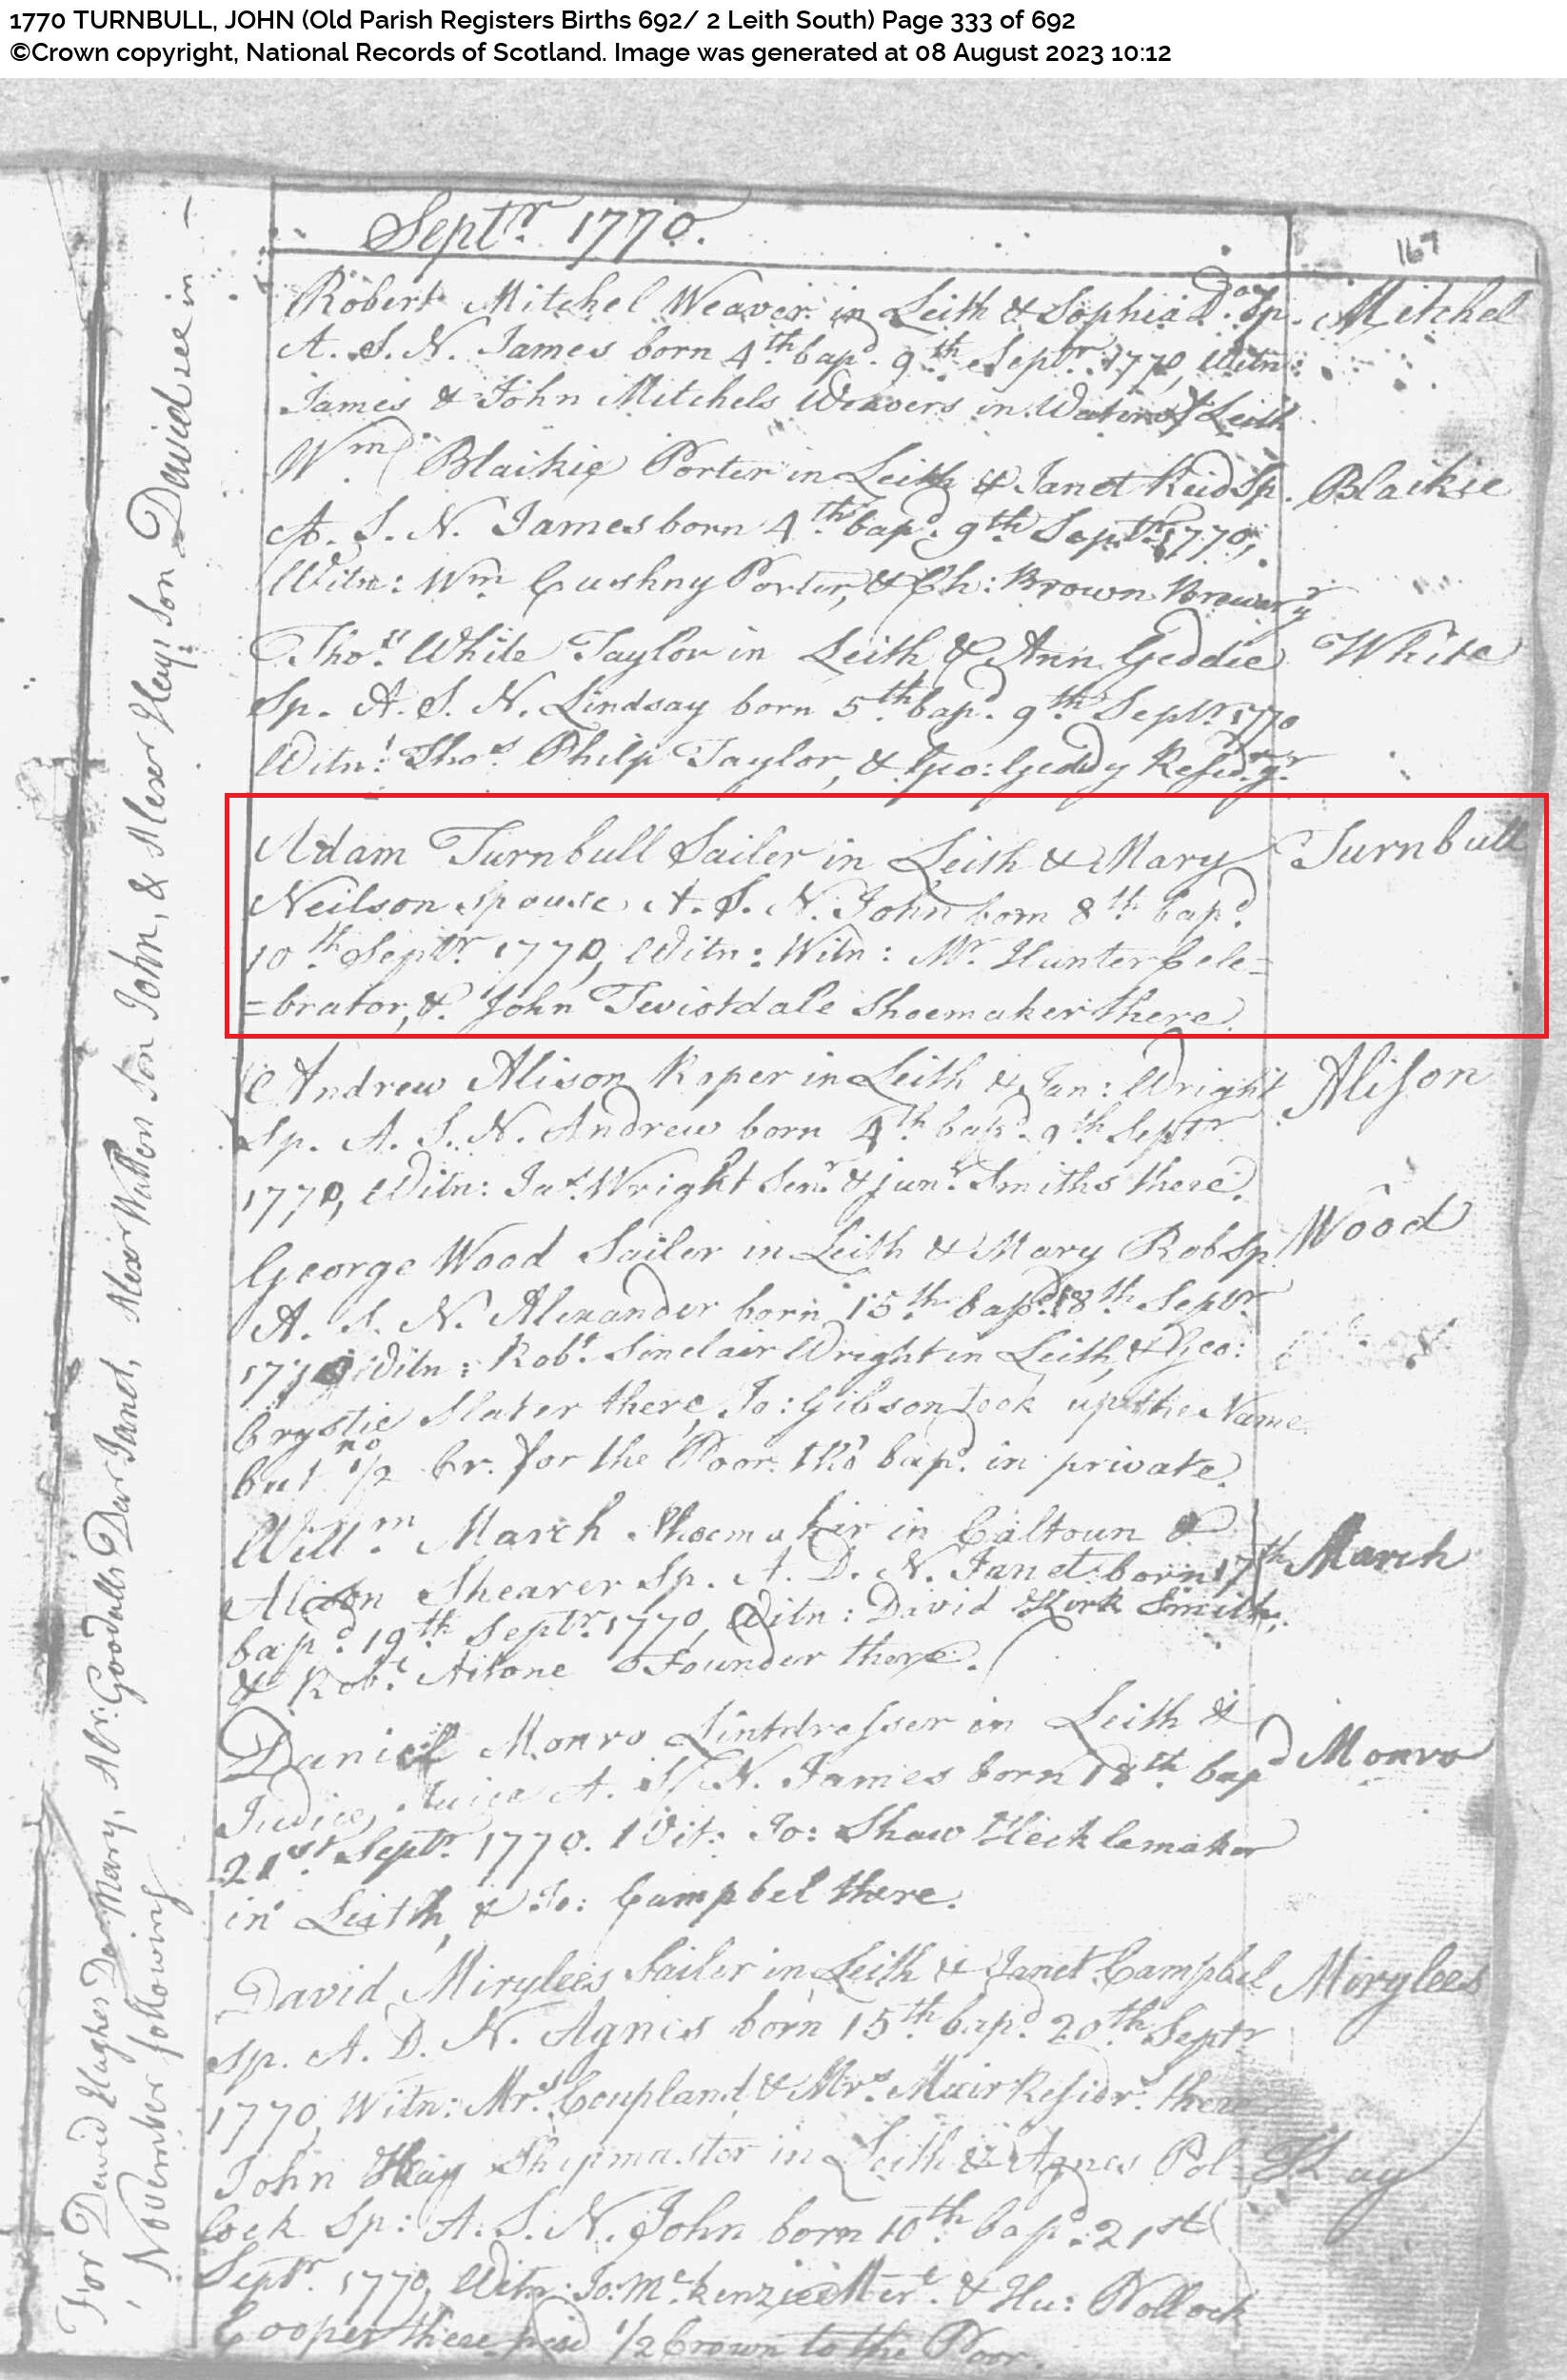 1770 TURNBULL, JOHN (Old Parish Registers Births 692/ 2 Leith South) Page 333 of 692
©Crown copyright, National Records of Scotland. Image was generated at 08 August 2023 10:12
Septr. 1770.
167
Robert Mitchel Weaver in Leith & Sophia Sp. Mitchel
A. S. N. James born 4th. bapd. 9th Septr. 1770, Witn:
James & John Mitchels Weavers in Water of Leith
Wm. Blaikie Porter in Leith & Janet Reid Sp. Blaikie
A. S. N. James born 4th bapd. 9th Septr. 1770,
Witn: Wm Cushny Porter, & Ch: Brown Brewer
Thos. White Taylor in Leith & Ann Geddie White
Sp. A. S. N. Lindsay born 5th. bapd. 9th Septr. 1770
Witn: Thos Philp Taylor, & Geo: Geddy
Adam Turnbull Sailer in Leith & Mary Turnbull
Neilson spouse A. S. N. John born 8th bapd
10th Septr. 1770, Witn: Witn: Mr. Hunter Cele=
=brator, & John Twistdale Shoemaker there.
Andrew Alison Roper in Leith & Jan: Wright Alison
Sp. A. S. N. Andrew born 4th bapd. 9th Septr
1770, Witn: Jas. Wright Senr. & junr. Smiths there.
George Wood Sailer in Leith & Mary Rob Sp. Wood
A. S. N. Alexander born 15th bapd. 18th Septr
1770 Witn: Robt. Sinclair Wright in Leith, & Geo:
Crystie Slater there, Jo: Gibson took up the Name
but no 1/2 Cr. for the Poor. tho' bapd. in private.
Willm. March Shoemaker in Caltoun & March
Alison Shearer Sp. A. D. N. Janet born 17th
bapd. 19th Septr. 1770, Witn: David Kirk Smith,
& Robt. Aitone Founder there.
Daniel Monro Lintdresser in Leith & Monro
A. S. N. James born 18th. bapd
21st Septr. 1770. Wit: Jo: Shaw Hecklemaker
in Leith, & Jo: Campbel there.
David Mirylees Sailer in Leith & Janet Campbel Mirylees
Sp. A. D. N. Agnes born 15th. bapd. 20th Septr
1770, Witn: Mrs. Coupland & Mrs. Muir Residrs. there
John Hay Shipmaster in Leith & Agnes Pol= Hay
lock Sp: A. S. N. John born 10th. bapd. 21st
Septr. 1770, Witn: Jo: McKenzie Mert. & Hu: Pollock
Cooper there paid 1/2 Crown to the Poor.
For David Hughes Dar Mary, Alr: Goodalls Dar Janet, Alexr Watson Son John, & Alexr Hays Son David see in —
November following